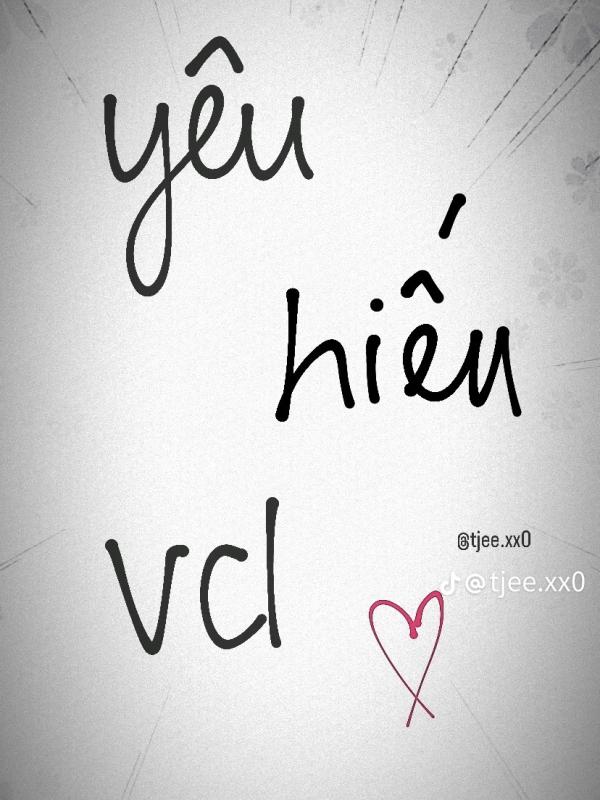 yêu
hiếu
vcl
@tjee.xx0
@tjee.xx0